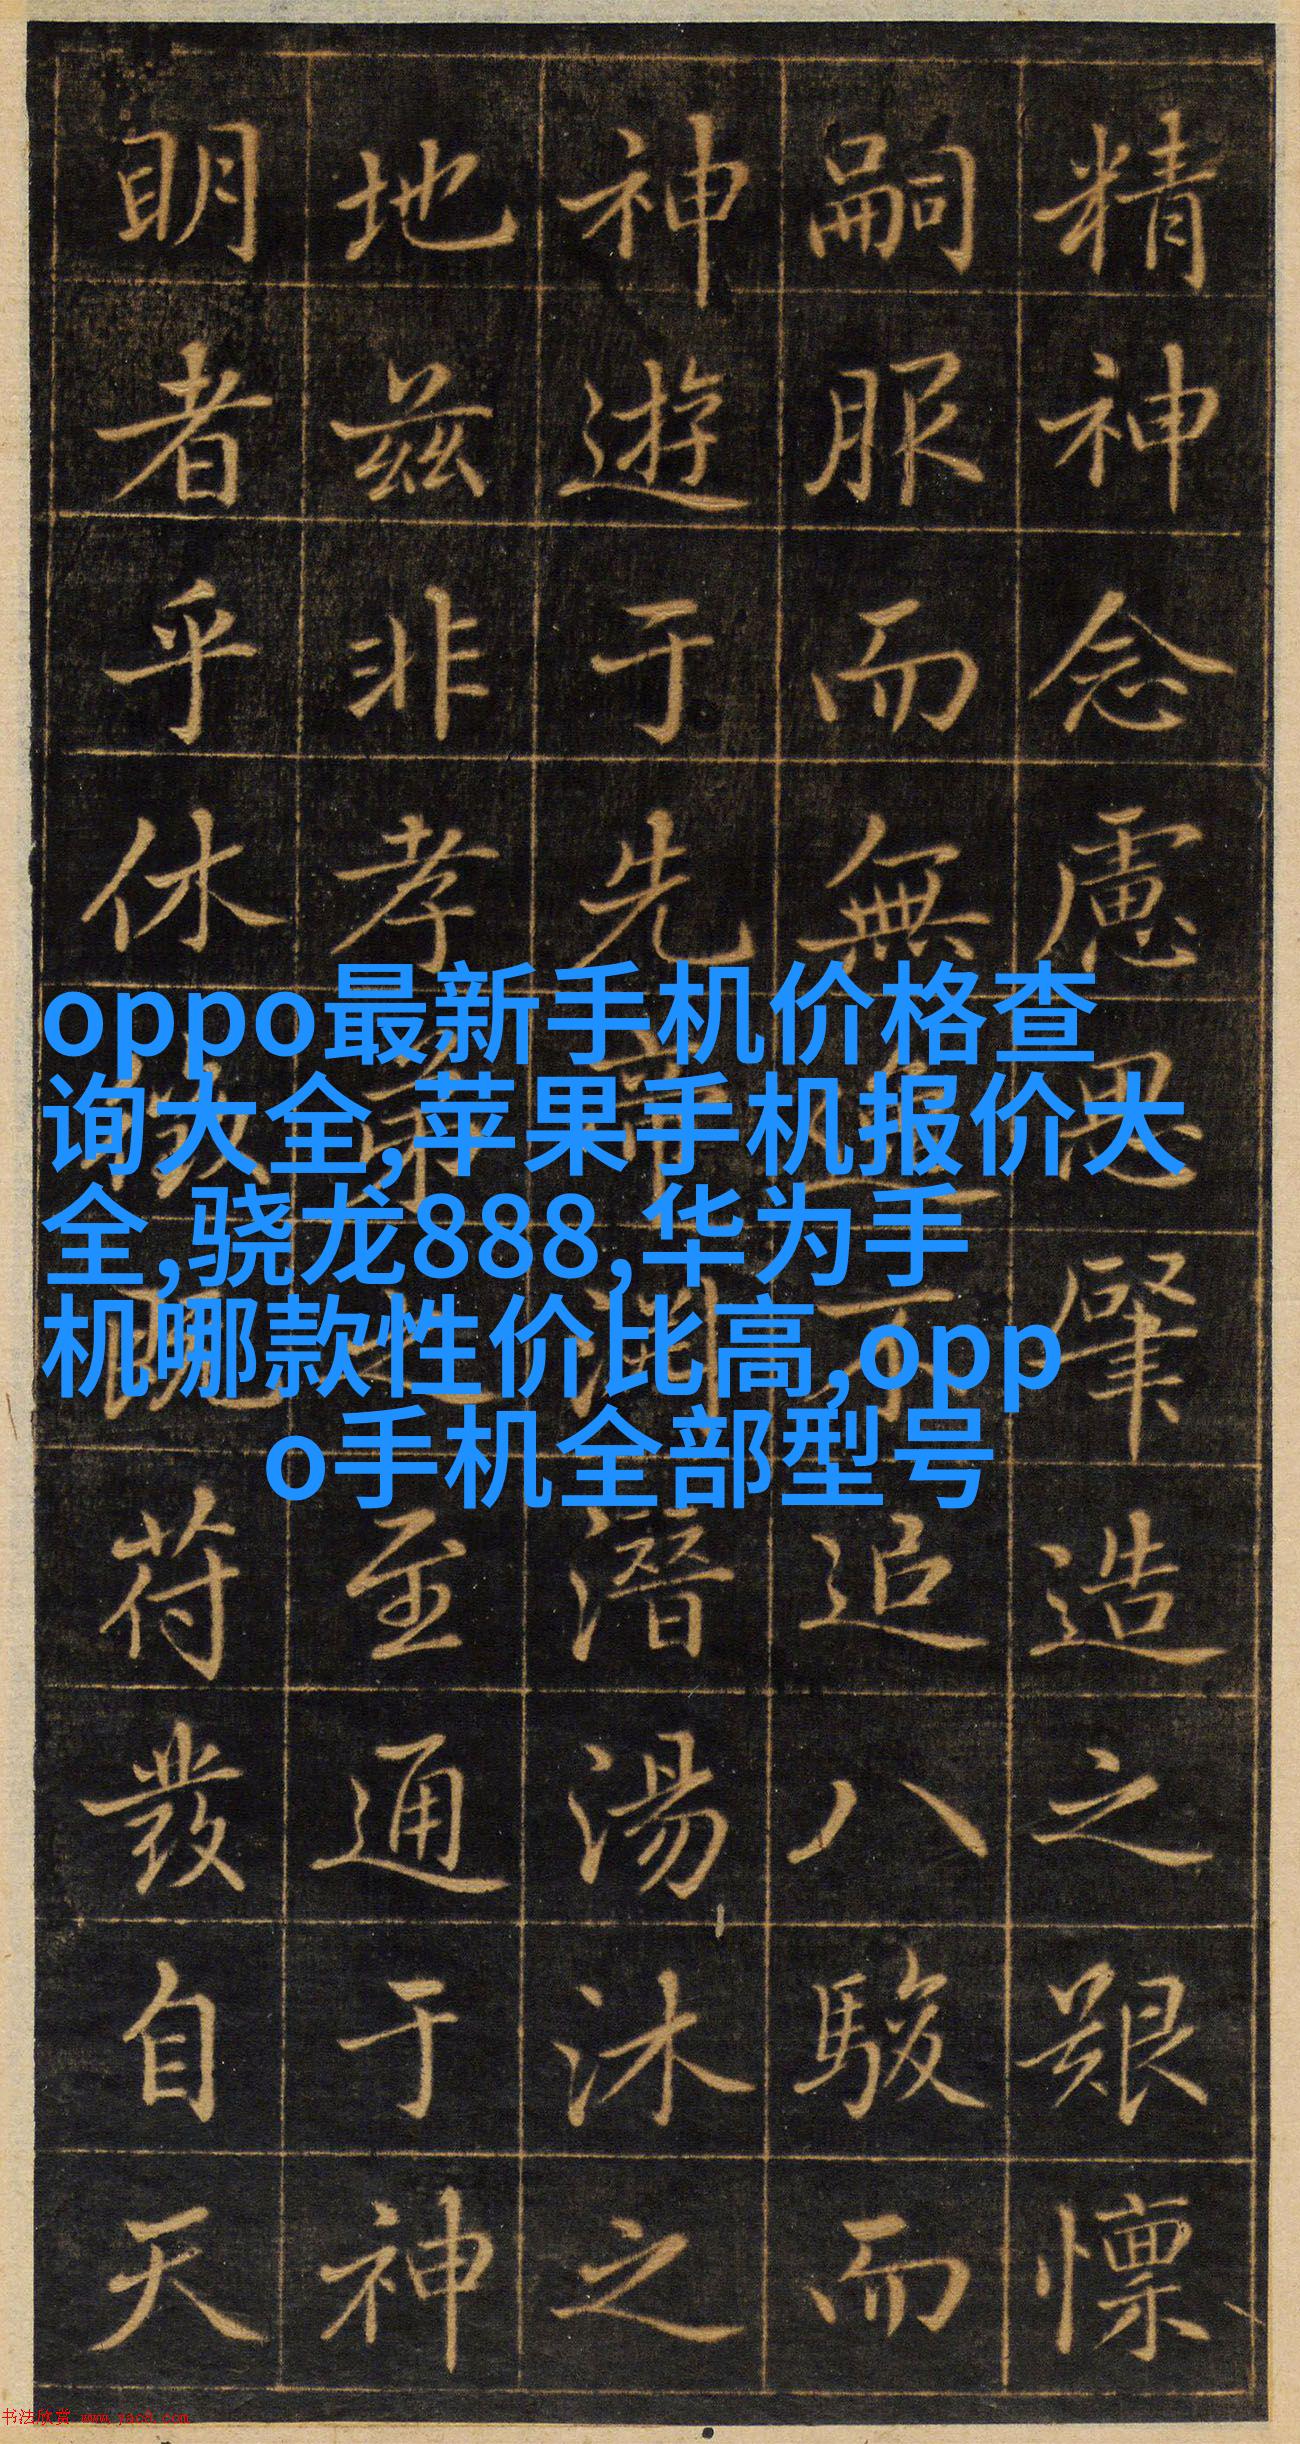 精神念慮思肇造之艱懍
嗣服而無不追八駿而
神遊于先帝淵潛湯沐之
地茲非孝弟之至通于神
明者乎休徵既苻發自天
oppo最新手机价格查
询大全,苹果手机报价大
全,骁龙888,华为手
机哪款性价比高,opp
o手机全部型号
书法欣赏 www.yac8.com